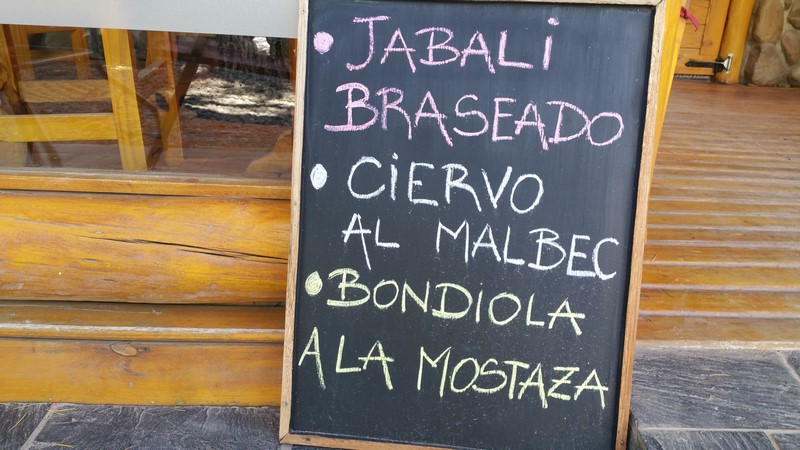 • JABALi
BRASEADO
• CiERVO
AL MALBEC
• BONDiOLA
A LA MOSTAZA